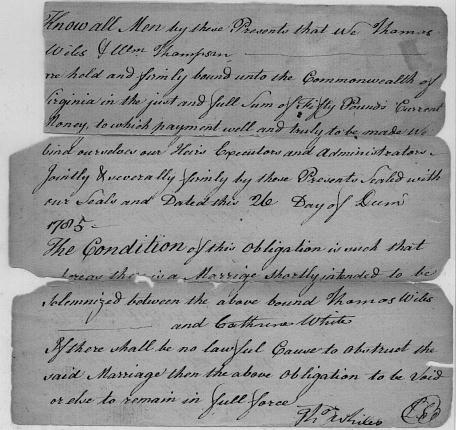 Know all Men by these Presents that We Thomas
Wiles & Wm Thompson
are held and firmly bound unto the Commonwealth of
Virginia in the just and full Sum of Fifty Pounds Current
Money, to which payment well and truly to be made We
bind ourselves our Heirs Executors and Administrators
Jointly & severally firmly by these Presents Sealed with
our Seals and Dated this 26 Day of
1785
The Condition of this Obligation is such that
whereas there is a Marriage Shortly intended to be
Solemnized between the above bound Thomas Wiles
and Cathrine White
If there shall be no lawful Cause to Obstruct the
said Marriage then the above Obligation to be Void
or else to remain in full force
Tho